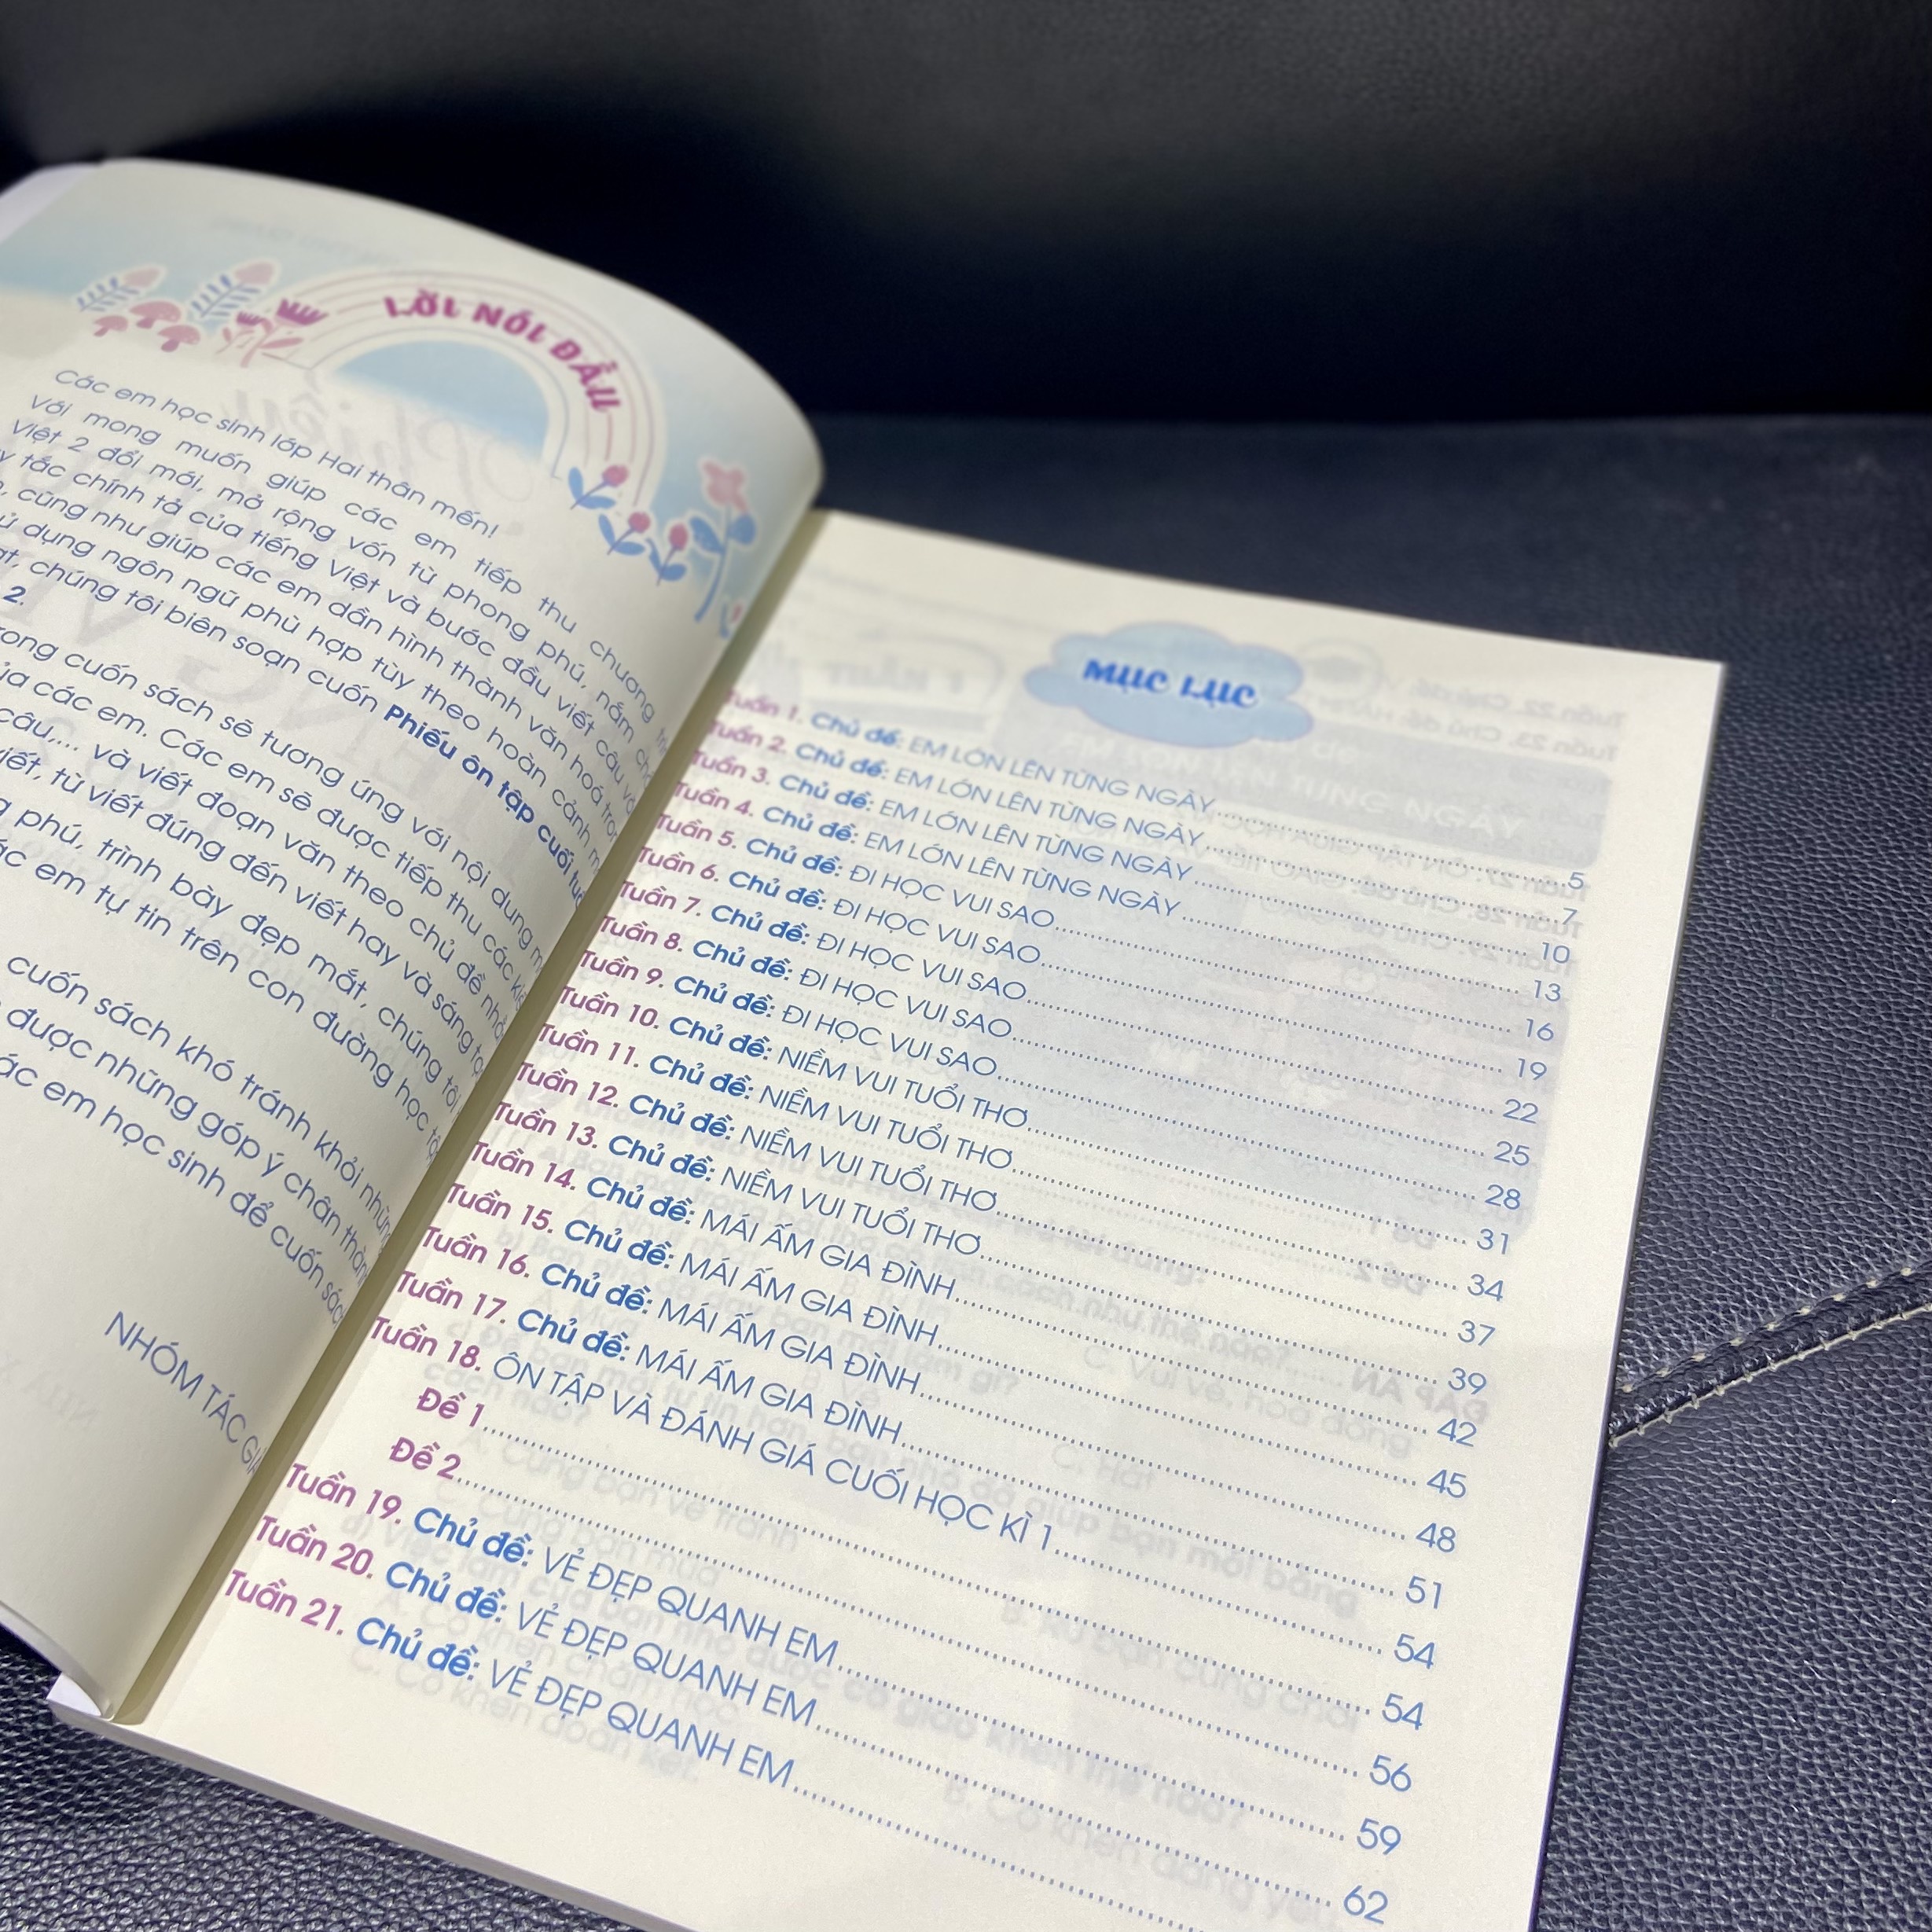 LỜI NÓI ĐẦU
Các em học sinh lớp Hai thân mến!
Với mong muốn giúp các em tiếp thu chương
Việt 2 đổi mới, mở rộng vốn từ phong phú, nắm
tắc chính tả của tiếng Việt và bước đầu viết câu
cũng như giúp các em dần hình thành văn hoá
dụng ngôn ngữ phù hợp tùy theo hoàn cảnh
chúng tôi biên soạn cuốn Phiếu ôn tập cuối
2.
cuốn sách sẽ tương ứng với nội dung
các em. Các em sẽ được tiếp thu các
câu,... và viết đoạn văn theo chủ đề
từ viết đúng đến viết hay và sáng
phú, trình bày đẹp mắt, chúng tôi
em tự tin trên con đường học
cuốn sách khó tránh khỏi
được những góp ý chân
em học sinh để cuốn
NHÓM TÁC
MỤC LỤC
Tuần 1. Chủ đề: EM LỚN LÊN TỪNG NGÀY 5
Tuần 2. Chủ đề: EM LỚN LÊN TỪNG NGÀY 7
Tuần 3. Chủ đề: EM LỚN LÊN TỪNG NGÀY 10
Tuần 4. Chủ đề: EM LỚN LÊN TỪNG NGÀY 13
Tuần 5. Chủ đề: ĐI HỌC VUI SAO 16
Tuần 6. Chủ đề: ĐI HỌC VUI SAO 19
Tuần 7. Chủ đề: ĐI HỌC VUI SAO 22
Tuần 8. Chủ đề: ĐI HỌC VUI SAO 25
Tuần 9. Chủ đề: ĐI HỌC VUI SAO 28
Tuần 10. Chủ đề: NIỀM VUI TUỔI THƠ 31
Tuần 11. Chủ đề: NIỀM VUI TUỔI THƠ 34
Tuần 12. Chủ đề: NIỀM VUI TUỔI THƠ 37
Tuần 13. Chủ đề: NIỀM VUI TUỔI THƠ 39
Tuần 14. Chủ đề: MÁI ẤM GIA ĐÌNH 42
Tuần 15. Chủ đề: MÁI ẤM GIA ĐÌNH 45
Tuần 16. Chủ đề: MÁI ẤM GIA ĐÌNH 48
Tuần 17. Chủ đề: MÁI ẤM GIA ĐÌNH 51
Tuần 18. ÔN TẬP VÀ ĐÁNH GIÁ CUỐI HỌC KÌ 1 54
Đề 1 54
Đề 2 56
Tuần 19. Chủ đề: VẺ ĐẸP QUANH EM 59
Tuần 20. Chủ đề: VẺ ĐẸP QUANH EM 62
Tuần 21. Chủ đề: VẺ ĐẸP QUANH EM